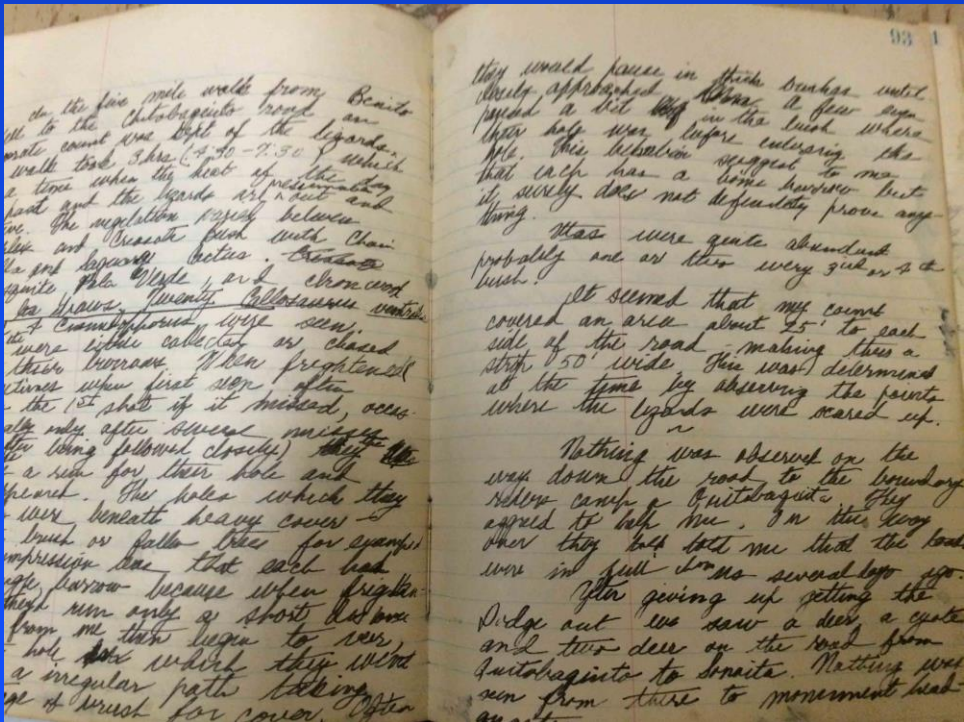 On the five mile walk from Benito
Well to the Quitobaquito road an
count was kept of the lizards.
walk took 3 hrs (4:30-7:30) which
a time when the heat of the day
past and the lizards are presumably out and
The vegetation varied between
and Creosote bush with Chain
and Saguaro Cactus. Creosote
Palo Verde, and ironwood
Twenty Callosaurus
were seen.
were either collected or chased
their burrows. When frightened (
when first seen often
the 1st shot if it missed,
only after several misses
being followed closely) they
a run for their hole and
The holes which they
were beneath heavy cover -
brush or fallen trees for example
impression that each had
burrow because when frighten-
they run only a short distance
from me then began to veer,
hole which they went
a irregular path taking
of brush for cover. Often
93 1
they would pause in thick bushes until
closely approached. a few even
paused a bit in the brush where
their hole was, before entering the
hole. This behavior suggest to me
that each has a home burrow but
it surely does not definitely prove any-
thing.
were quite abundant
probably one or two every 3rd or 4th
bush.
It seemed that my count
covered an area about 25' to each
side of the road - making thus a
50' wide. This was determined
at the time by observing the points
where the lizards were scared up.
~
Nothing was observed on the
way down the road to the boundary
camp Quitobaquito. They
agreed to help me. On the way
over they told me that the toads
were in full several days ago.
After giving up getting the
Dodge out we saw a deer, a coyote
and two deer on the road from
Quitobaquito to Sonoita. Nothing was
seen from there to monument head-